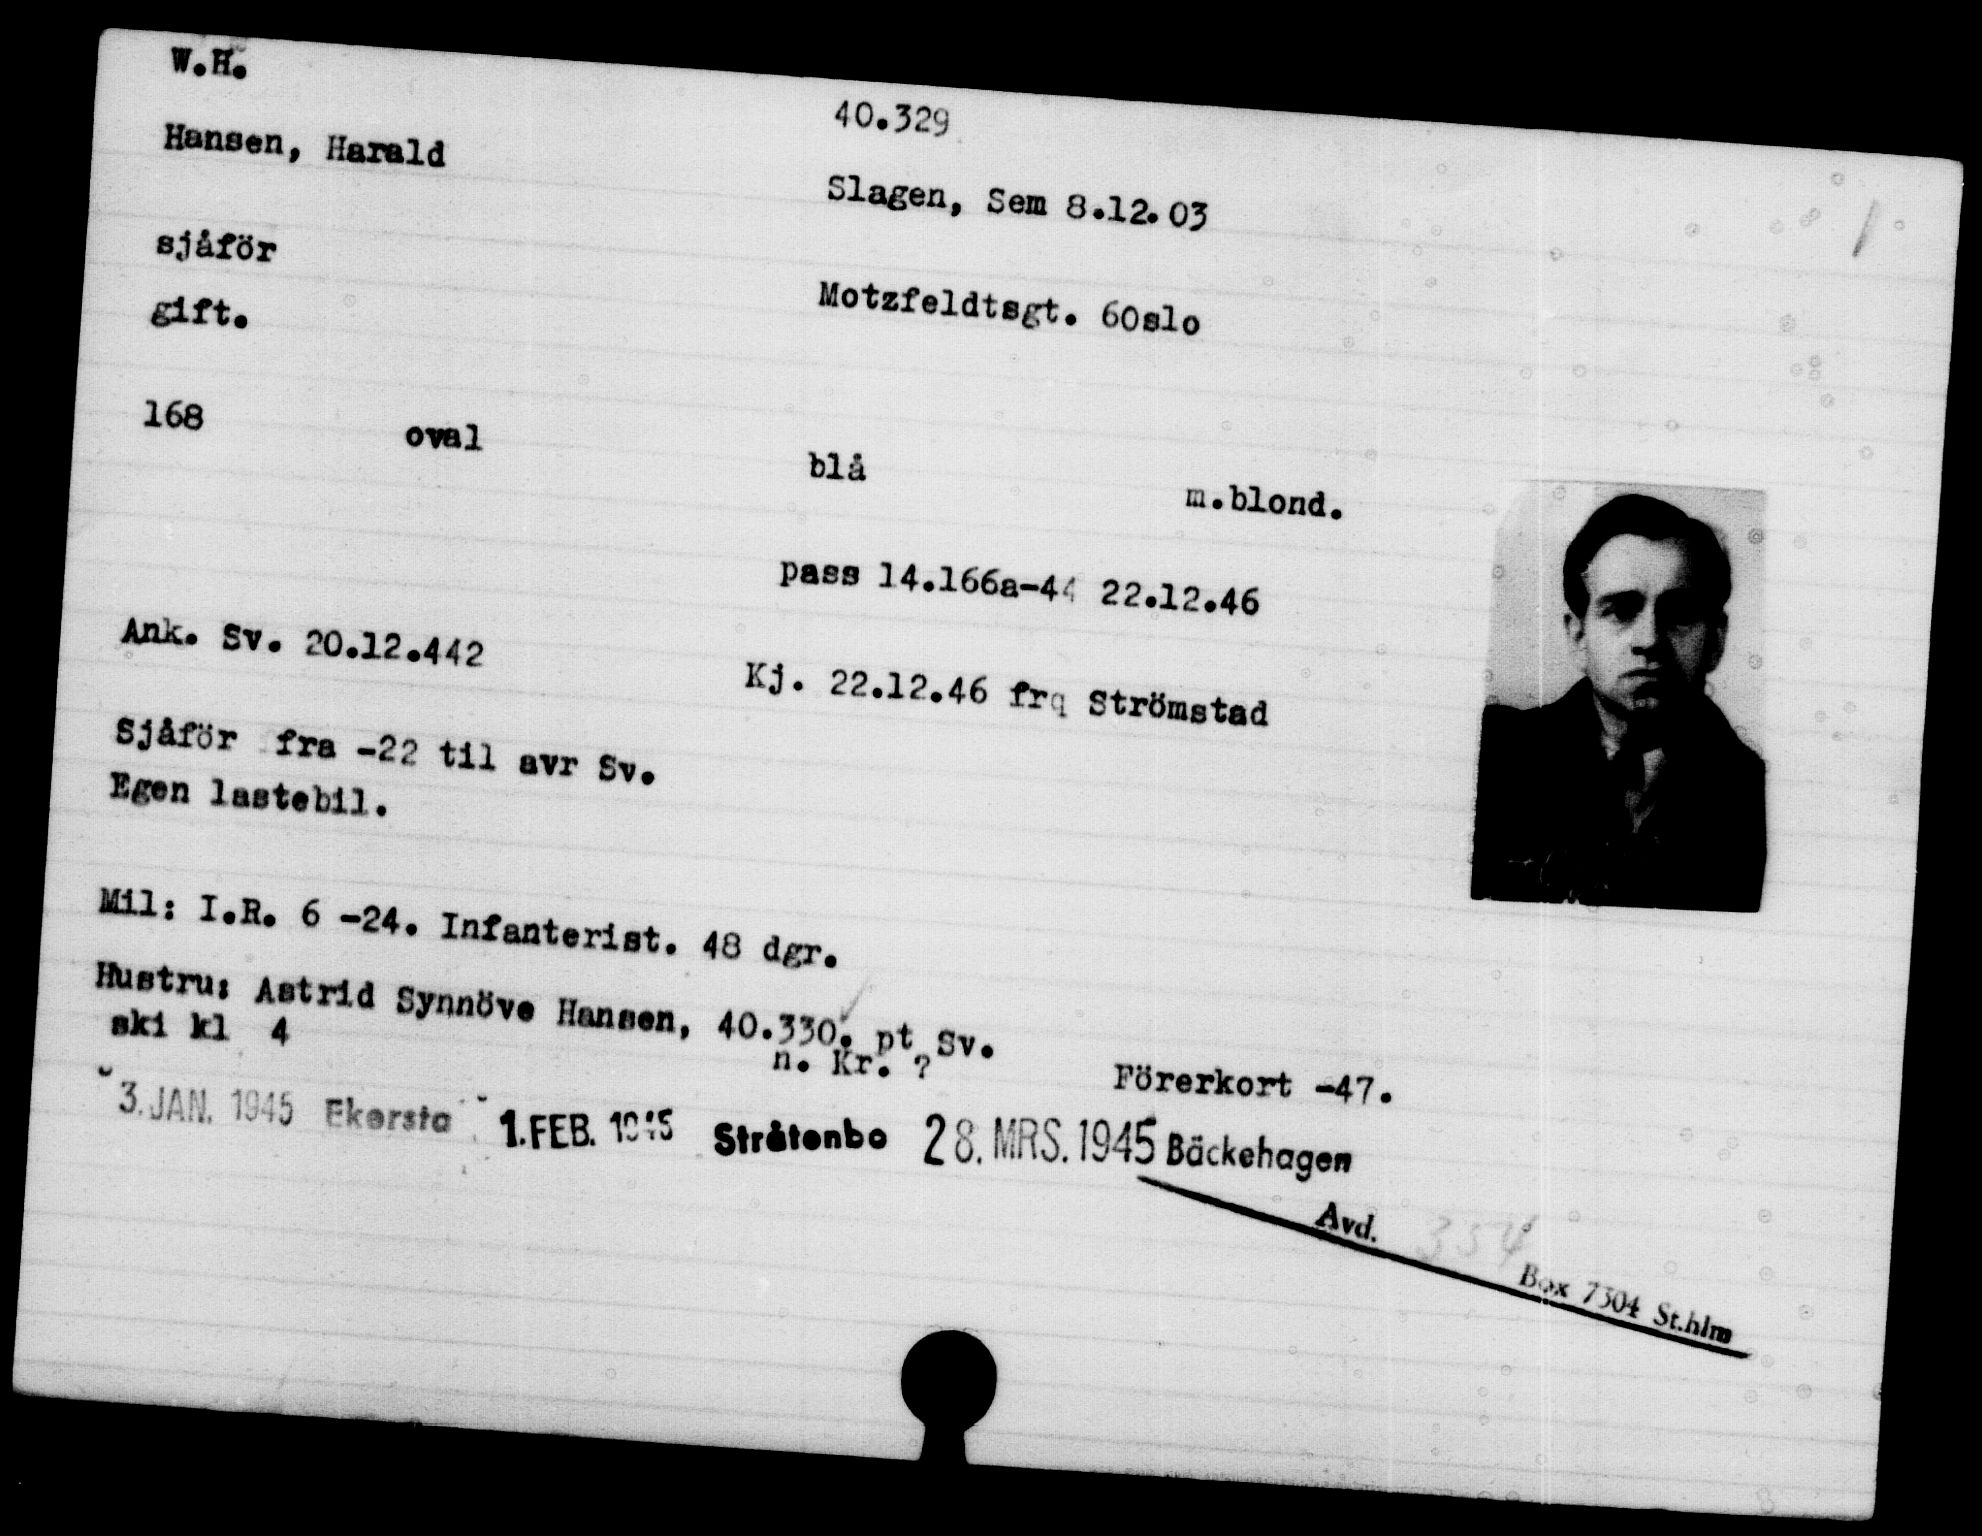 W.H.
40.329
Hansen, Harald
Slagen, Sem 8.12.03
sjåför
Motzfeldtsgt. 6Oslo
gift.
168 oval blå m.blond.
pass 14.166a-44 22.12.46
Ank. Sv. 20.12.442
Kj. 22.12.46 frq Strömstad
Sjåför fra -22 til avr Sv.
Egen lastebil.
Mil: I.R. 6 -24. Infanterist. 48 dgr.
Hustru: Astrid Synnöve Hansen, 40.330. pt Sv.
ski kl 4 n. Kr. ? Förerkort -47.
3. JAN. 1945 Ekersta 1. FEB. 1945 Stråtenbo 28. MRS. 1945 Bäckehagen
Avd. 354
Box 7304 St.hlm